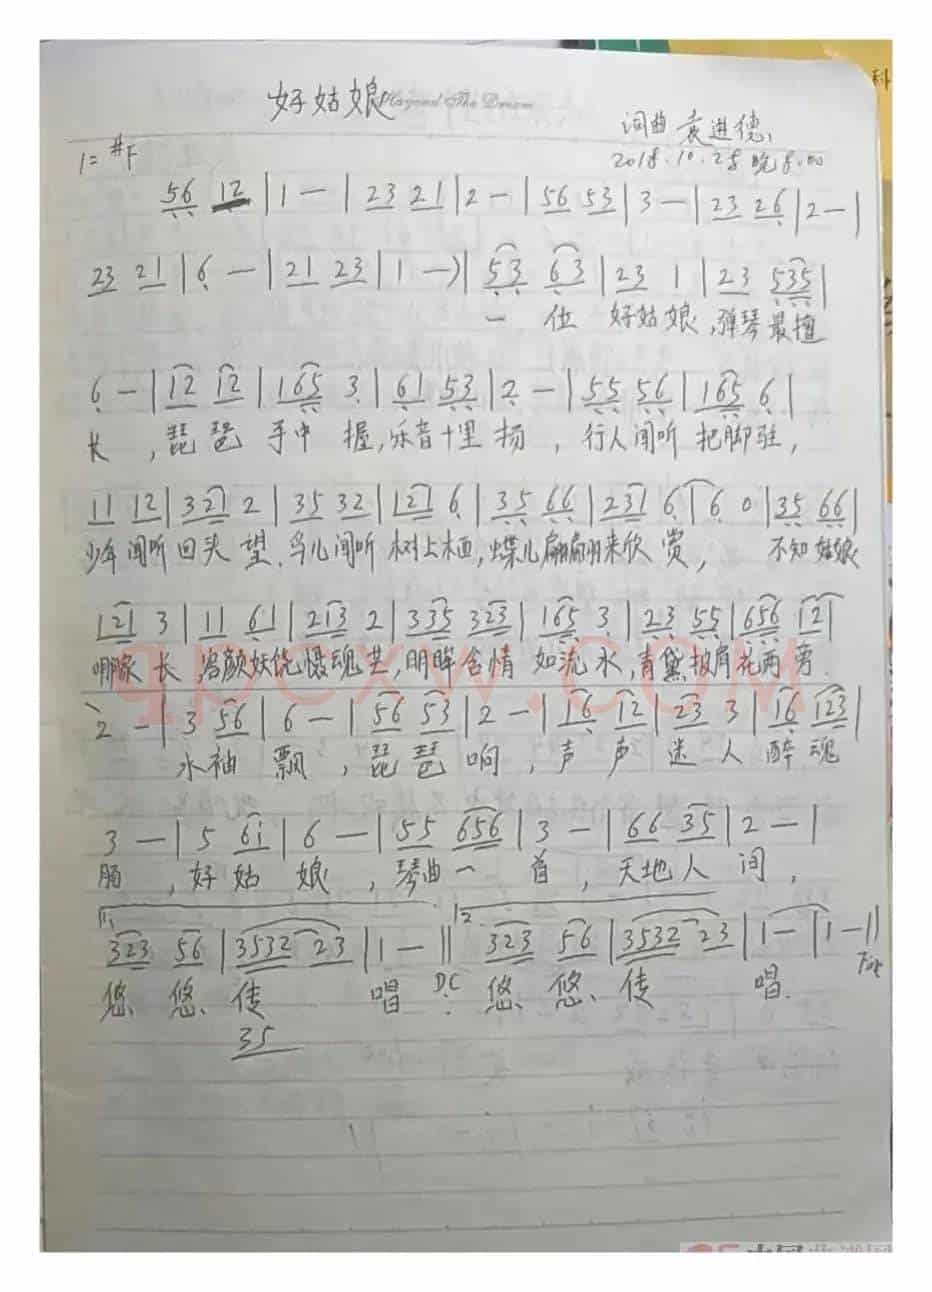 好姑娘
词曲 袁进德
1=#F
2018.10.28晚8:00
56 12 | 1 — | 23 21 | 2 — | 56 53 | 3 — | 23 26 | 2 — |
23 21 | 6 — | 21 23 | 1 —) | 53 63 | 23 1 | 23 535 |
一 位 好姑娘,弹琴最擅
6 — | 12 12 | 165 3 | 61 53 | 2 — | 55 56 | 165 6 |
长 ,琵琶 手中 握,乐音十里 扬 , 行人闻听 把脚驻,
11 12 | 321 2 | 35 32 | 121 6 | 35 66 | 231 6 | 6 0 | 35 66 |
少年闻听回头 望.鸟儿闻听 树上栖,蝶儿翩翩来欣 赏, 不知姑娘
121 3 | 11 61 | 213 2 | 335 323 | 165 3 | 23 55 | 656 121 |
哪家 长,容颜妖饶慑魂芒,明眸含情 如流水,青黛披肩花两旁.
qpcxw.COM
2 — | 3 56 | 6 — | 56 53 | 2 — | 16 12 | 23 3 | 16 123 |
水袖 飘 , 琵琶 响 , 声 声 迷 人 醉 魂
3 — | 5 61 | 6 — | 55 656 | 3 — | 66 35 | 2 — |
肠 ,好 姑 娘 , 琴曲一 首 , 天地人 间 ,
1. 2.
323 56 | 3532 23 | 1 — || 323 56 | 3532 23 | 1 — | 1 — ||
悠 悠、传 唱 D.C 悠、悠、传 唱. Fine
35